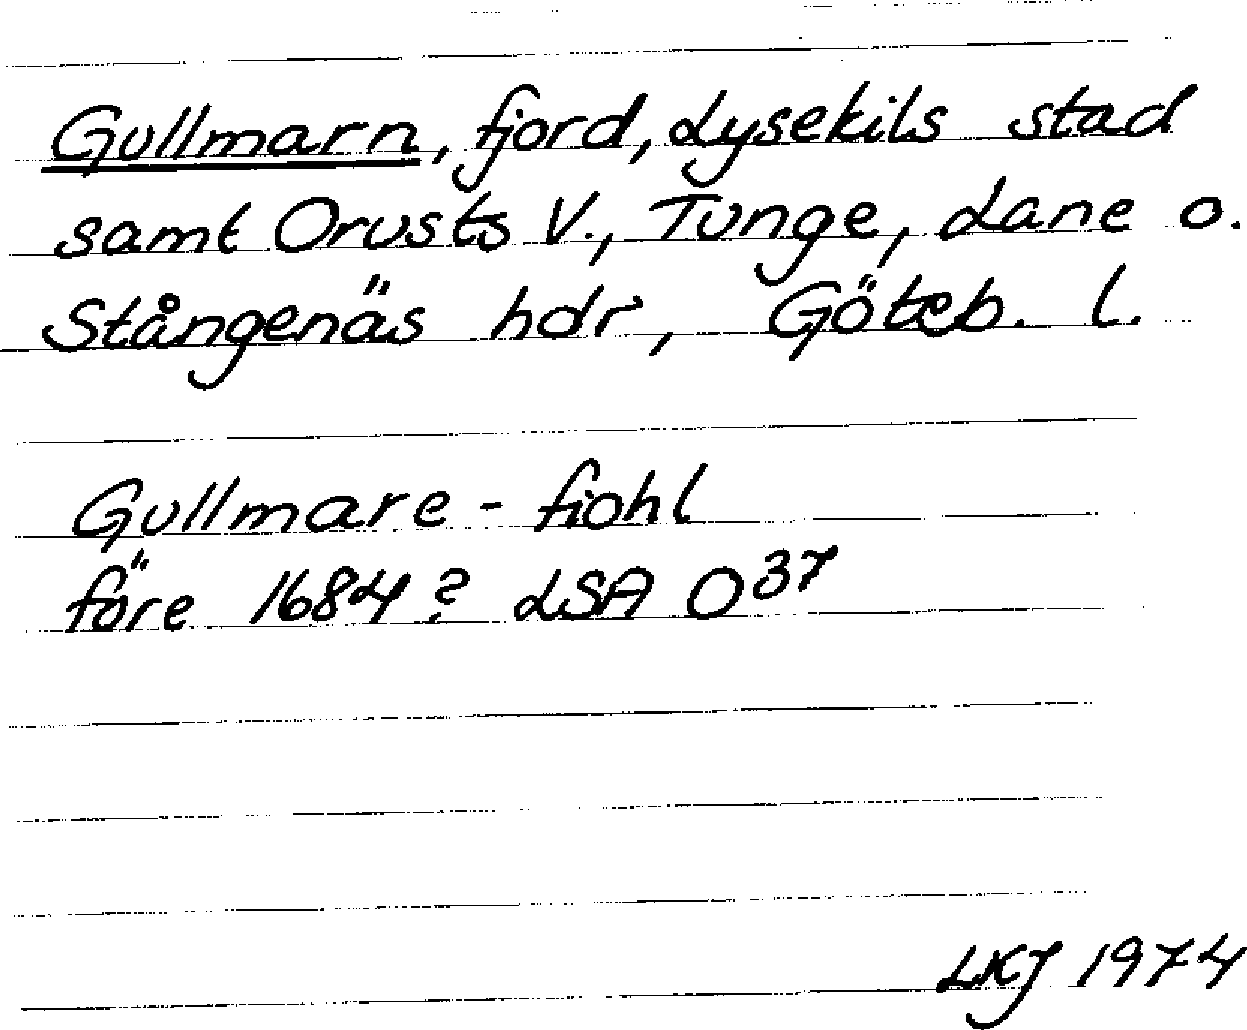 Gullmarn, fjord, Lysekils stad
samt Orusts V., Tunge, Lane o.
Stångenäs hdr, Göteb. l.
Gullmare - fiohl
före 1684? LSA O37
LKJ 1974